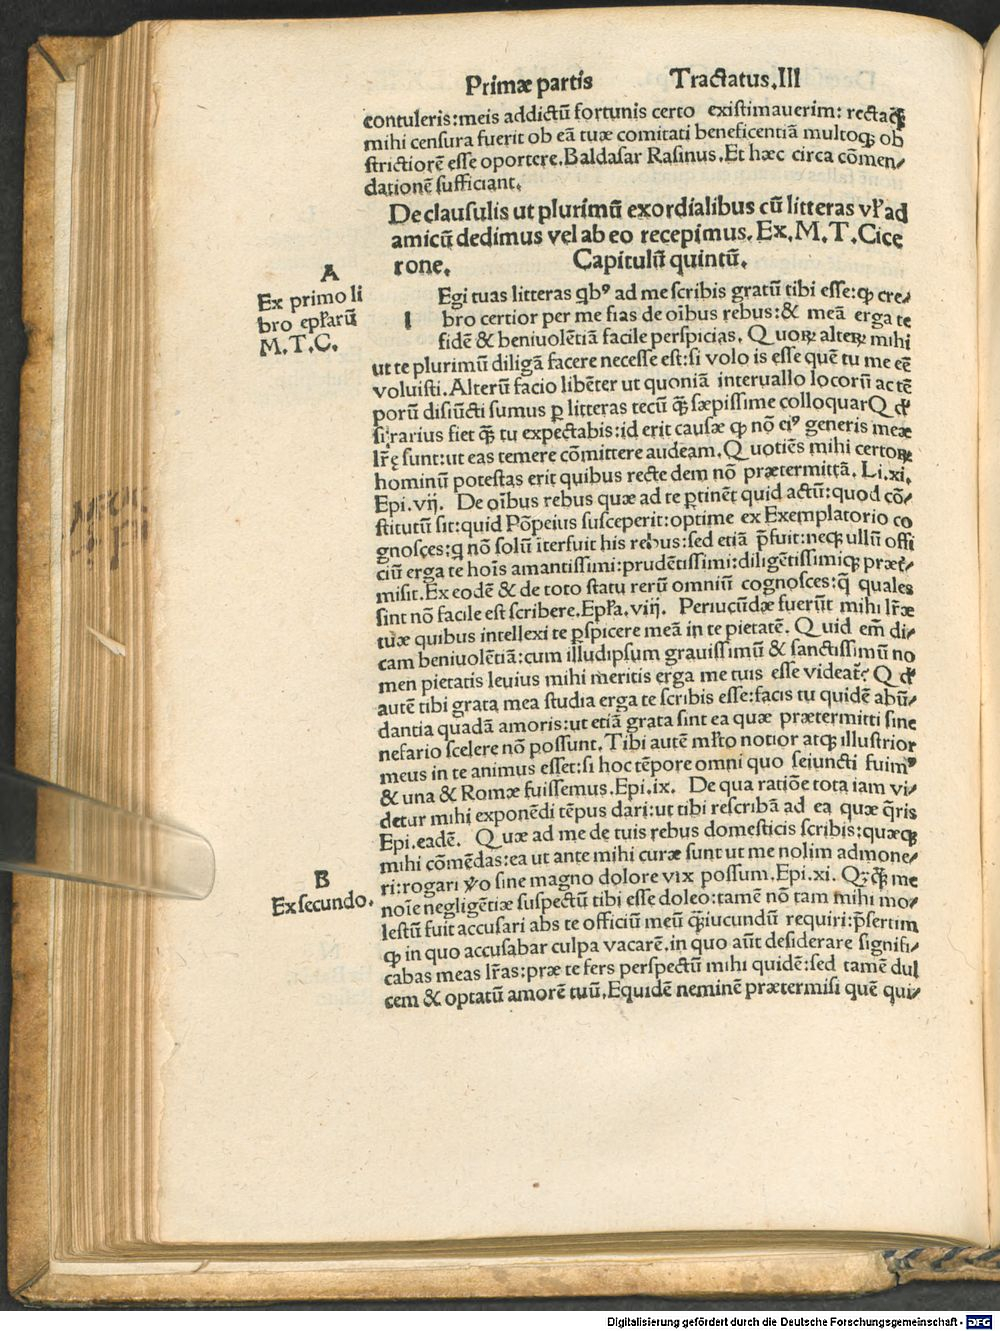 Primæ partis Tractatus.III
contuleris:meis addictū fortunis certo existimauerim: rectaq̃
mihi censura fuerit ob eā tuæ comitati beneficentiā multoqꝫ ob
strictiorē esse oportere.Baldasar Rasinus.Et hæc circa cōmen/
datione̅ sufficiant.
De clausulis ut plurimū exordialibus cū litteras vl̛ ad
amicū dedimus vel ab eo recepimus.Ex.M.T.Cice
rone. Capitulū quintū.
A
Ex primo li
bro epl̛arū
M.T.C.
l Egi tuas litteras qb⁹ ad me scribis gratū tibi esse:qꝫ cre/
bro certior per me fias de oībus rebus:& meā erga te
fidē & beniuolētiā facile perspicias. Quoꝝ alteꝝ mihi
ut te plurimū diligā facere necesse est:si volo is esse quē tu me eē
voluisti.Alterū facio libēter ut quoniā interuallo locorū ac tē
porū disiūcti sumus ꝑ litteras tecū q̃ sæpissime colloquar Q ꝙ
si rarius fiet q̃ tu expectabis:id erit causæ qꝫ nō ei⁹ generis meæ
lr̄ę sunt:ut eas temere cōmittere audeam.Quotiēs mihi certoꝝ
hominū potestas erit quibus recte dem nō prætermittā. Li.xi.
Epi.vij. De oībus rebus quæ ad te ꝑtinēt quid actū:quod cō/
stitutū sit:quid Pōpeius susceperit:optime ex Exemplatorio co
gnosces:q nō solū īterfuit his rebus:sed etiā p̄fuit:neqꝫ ullū offi
ciū erga te hoīs amantissimi:prudētissimi:diligētissimiqꝫ præt̛/
misit.Ex eodē & de toto statu rerū omniū cognosces:q̄ quales
sint nō facile est scribere.Epl̛a.viij. Periucūdæ fuerūt mihi lr̄æ
tuæ quibus intellexi te ꝑspicere meā in te pietatē. Quid em̄ di/
cam beniuolētiā:cum illud ipsum grauissimū & sanctissimū no
men pietatis leuius mihi meritis erga me tuis esse videat̛ Q ꝙ
autē tibi grata mea studia erga te scribis esse:facis tu quidē abū/
dantia quadā amoris:ut etiā grata sint ea quæ prætermitti sine
nefario scelere nō possunt.Tibi autē ml̛to notior atqꝫ illustrior
meus in te animus esset:si hoc tēpore omni quo seiuncti fuim⁹
& una & Romæ fuissemus.Epi.ix. De qua ratiōe tota iam vi/
detur mihi exponēdi tēpus dari:ut tibi rescribā ad ea quæ q̄ris
Epi.eadē. Quæ ad me de tuis rebus domesticis scribis:quæqꝫ
mihi cōmēdas:ea ut ante mihi curæ sunt ut me nolim admone/
ri:rogari v̊o sine magno dolore vix possum.Epi.xi. Qꝫq̃ me
B
Ex secundo.
noīe negligētiæ suspectū tibi esse doleo:tamē nō tam mihi mo/
lestū fuit accusari abs te officiū meū q̃ iucundū requiri:p̄sertim
qꝫ in quo accusabar culpa vacarē.in quo aūt desiderare signifi/
cabas meas lr̄as:præ te fers perspectū mihi quidē:sed tamē dul
cem & optatū amorē tuū.Equidē neminē prætermisi quē qui/
Digitalisierung gefördert durch die Deutsche Forschungsgemeinschaft - DFG